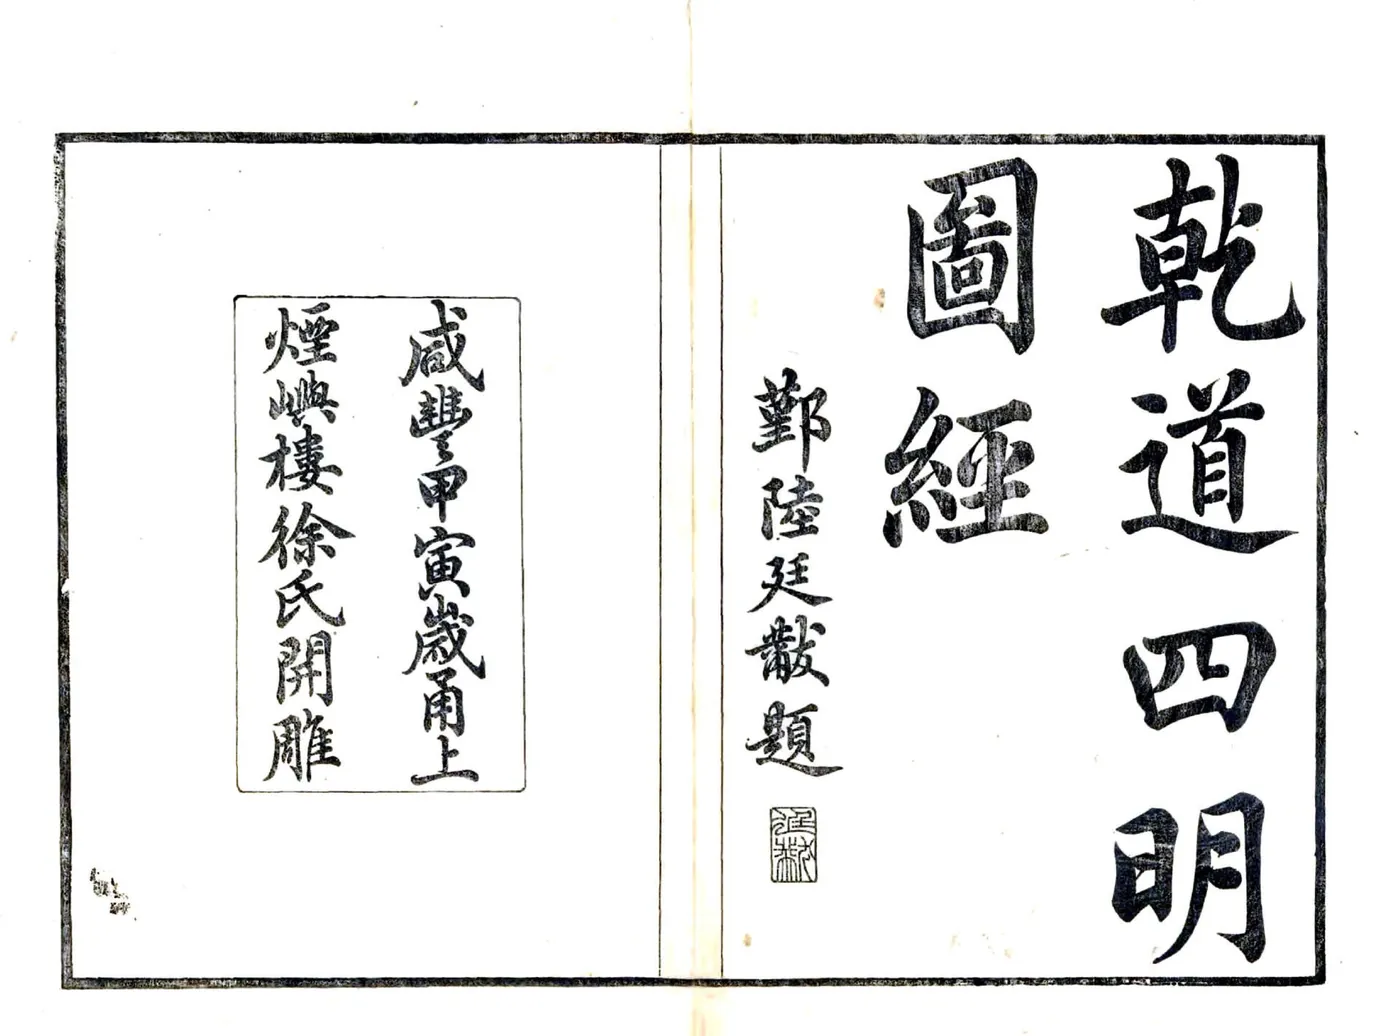 乾道四明
圖經
鄞陸廷黻題
廷黻
咸豐甲寅歲甬上
煙嶼樓徐氏開雕